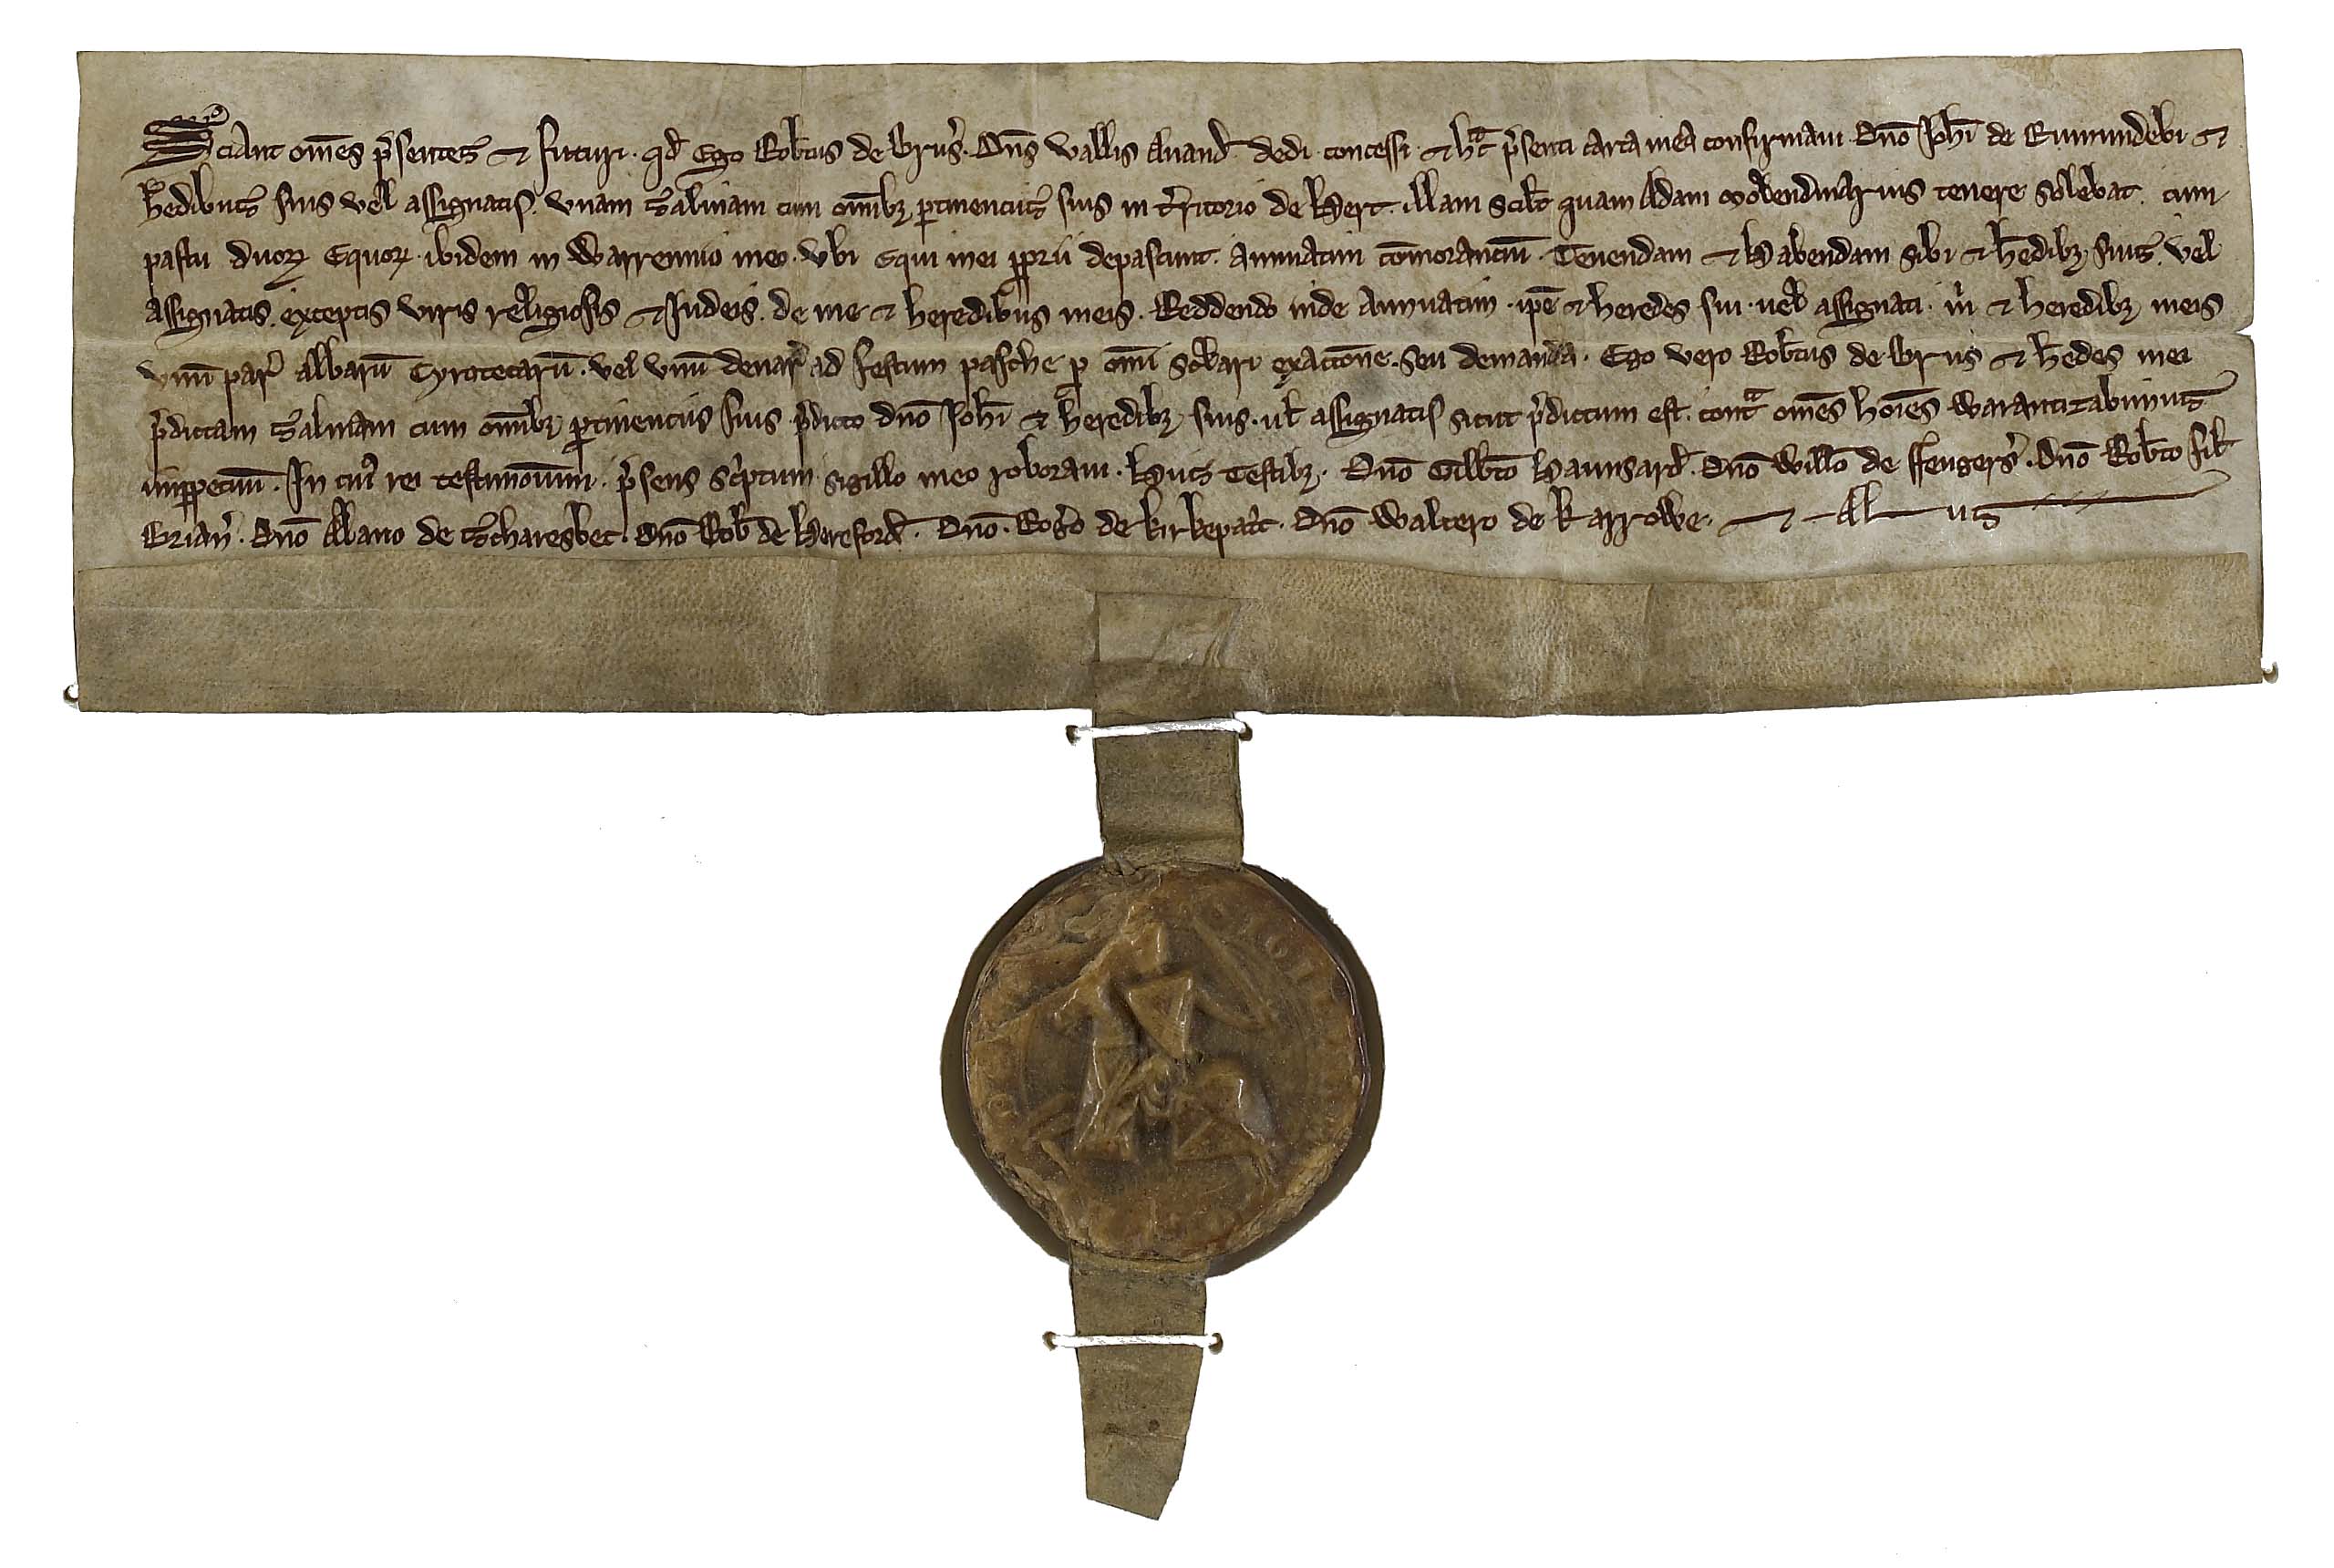 Sciant om̅es p̾sentes ⁊ futuri . qd̅ Ego Rob̅tus de Brus̾ . Dn̅s Vallis Anand̅ dedi . concessi . ⁊ hac p̾senti carta mea confirmaui . Dn̅o Joh̅i de Rumundebi ⁊
h̅edibus suis vel assignatis . vnam salinam cum om̅ibꝫ ꝑtinenciis suis in t̾ritorio de Hert . illam scil̅t quam Adam molendinarius tenere solebat . cum
pastu duoꝝ Equoꝝ . ibidem in Warennio meo . vbi Equi mei ꝓprii depascunt . annuatim com̅orantiu̅ . Tenendam ⁊ Habendam sibi ⁊ h̅edibꝫ suis . vel
assignatis . exceptis viris religiosis ⁊ Judeis . de me ⁊ heredibus meis . Reddendo inde Annuatim . ip̅e ⁊ heredes sui . uel assignati . m̾ ⁊ heredibꝫ meis
vnu̅ par̾ albaru̅ Cyrotecaru̅ . vel vnu̅ denar̾ ad festum pasche ꝑ om̅i seculari exactio̅ne . seu demanda . Ego vero Rob̅tus de Brus ⁊ h̅edes mei
p̾dictam salinam cum om̅ibꝫ ꝑtinenciis suis p̾dicto dn̅o Joh̅i ⁊ heredibꝫ suis . ul̅ assignatis sicut p̾dictum est . contᵃ om̅es ho̅ies Warantizabimus
inꝑpetuu̅ . In cuiꝰ rei testimo̅ium . p̾sens sc̾ptum sigillo meo roboraui . Hiis Testibꝫ . Dn̅o Gilb̅to Haunsard̅ . Dn̅o Will̅o de ffengers̾ . Dn̅o Rob̅to fil̅
Brian̾ . Dn̅o Alano de Scharesbec . Dn̅o Rob̅ de Hereford̅ . Dn̅o . Rog̾o de Kirkepat̾c . Dn̅o Waltero de Karrowe . ⁊ Aliis